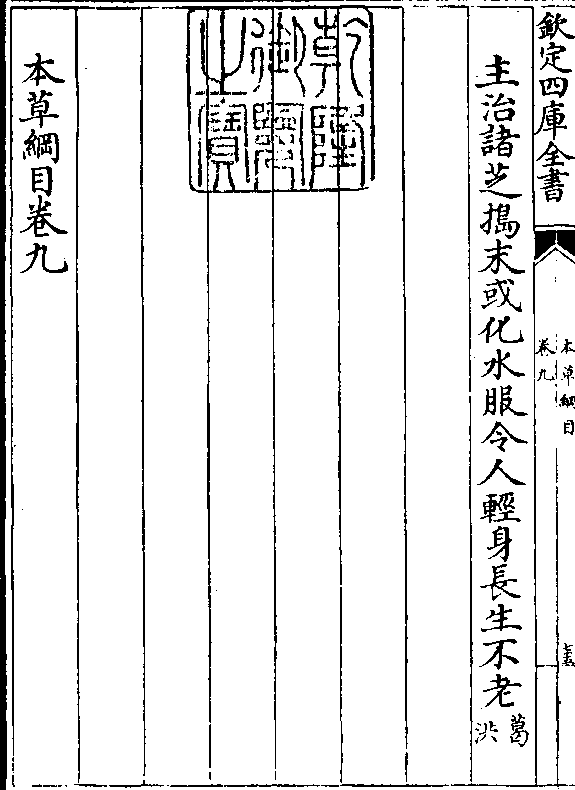 欽定四庫全書
本草綱目
卷九
主治諸芝搗末或化水服令人輕身長生不老葛洪
乾隆御覽之寶
本草綱目卷九